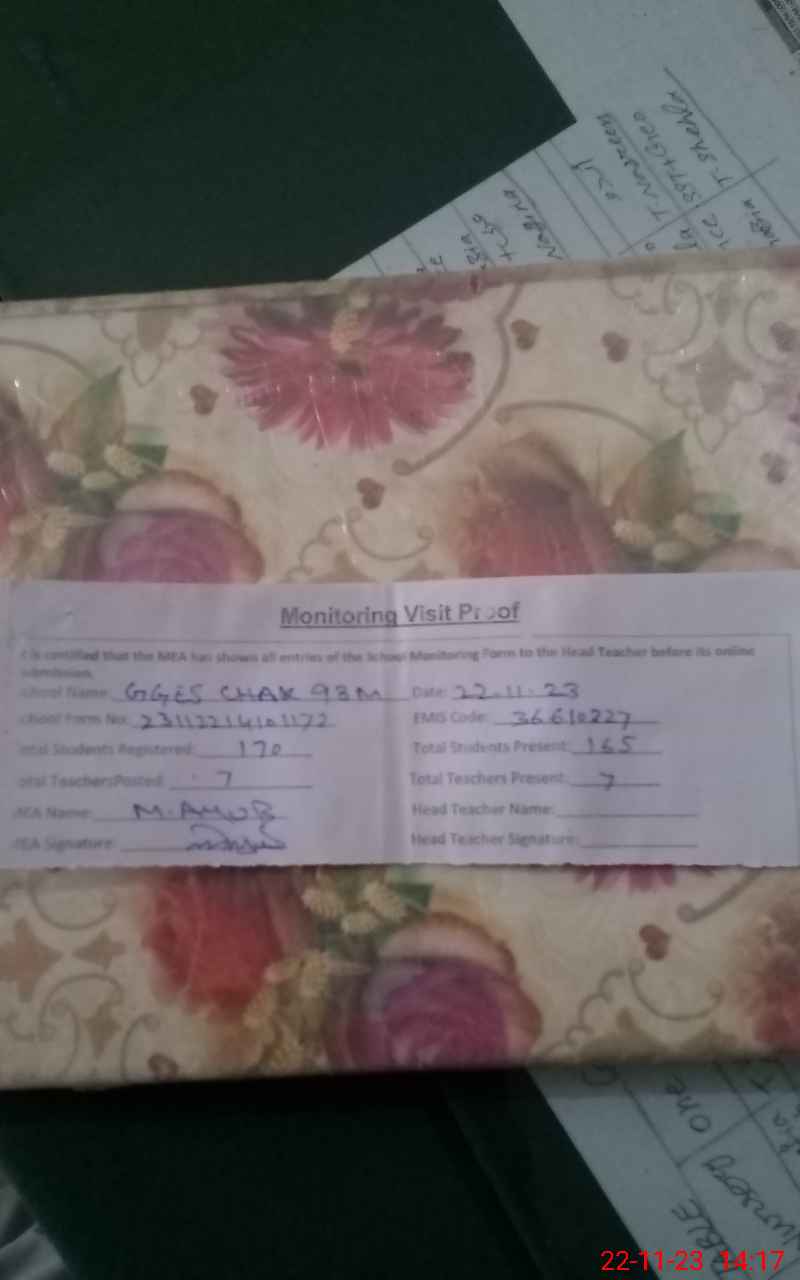 T.Shehla
SST+Gree
T.Nasreen
Nazina
Monitoring Visit Proof
t is certified that the MEA has shown all entries of the School Monitoring Form to the Head Teacher before its online
submission.
chool Name: GGES CHAK 93M Date: 22.11.23
chool Form No: EMIS Code: 36610227
otal Students Registered: 170 Total Students Present: 165
otal TeachersPosted: 7 Total Teachers Present: 7
MEA Name: M.AYUB Head Teacher Name:
MEA Signature: Head Teacher Signature:
one
Nursery
22-11-23 14:17